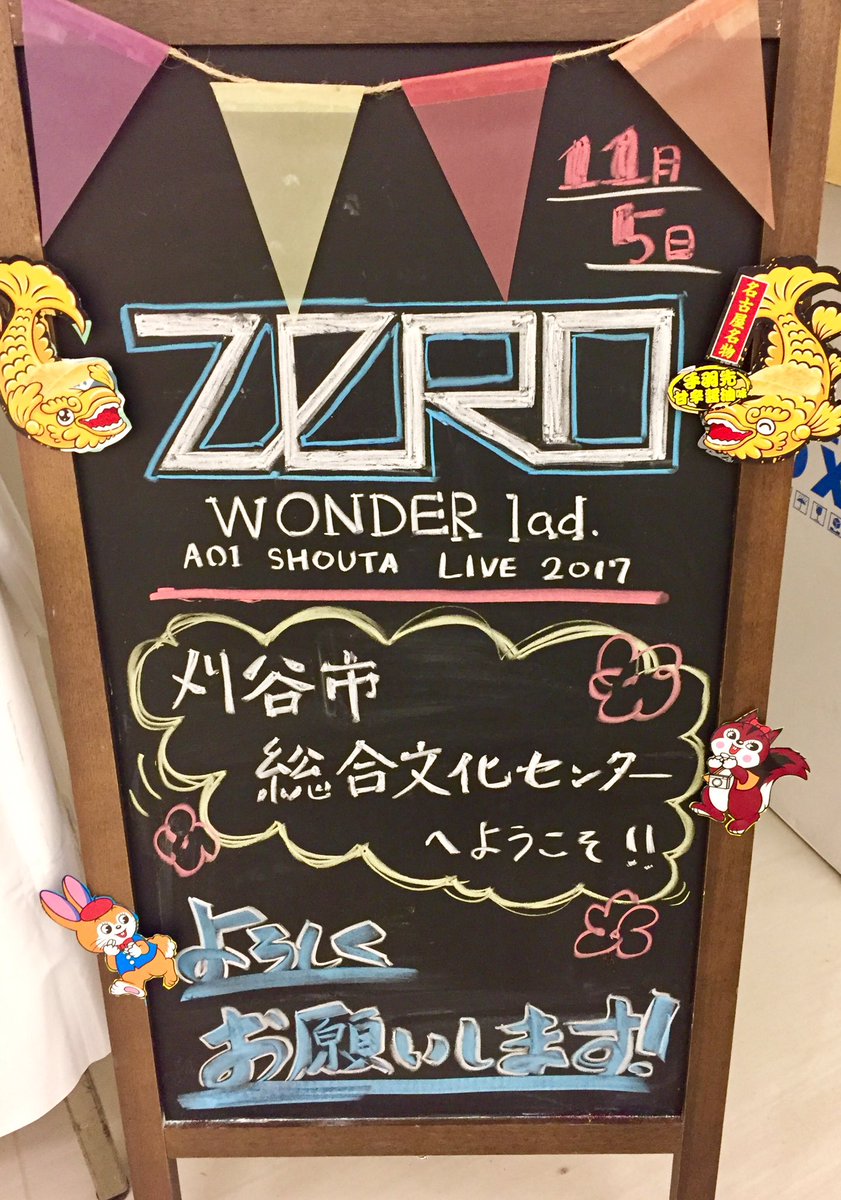 11月
5日
ZERO
WONDER lad.
AOI SHOUTA LIVE 2017
刈谷市
総合文化センター
へようこそ!!
よろしく
お願いします!
名古屋名物
手羽先